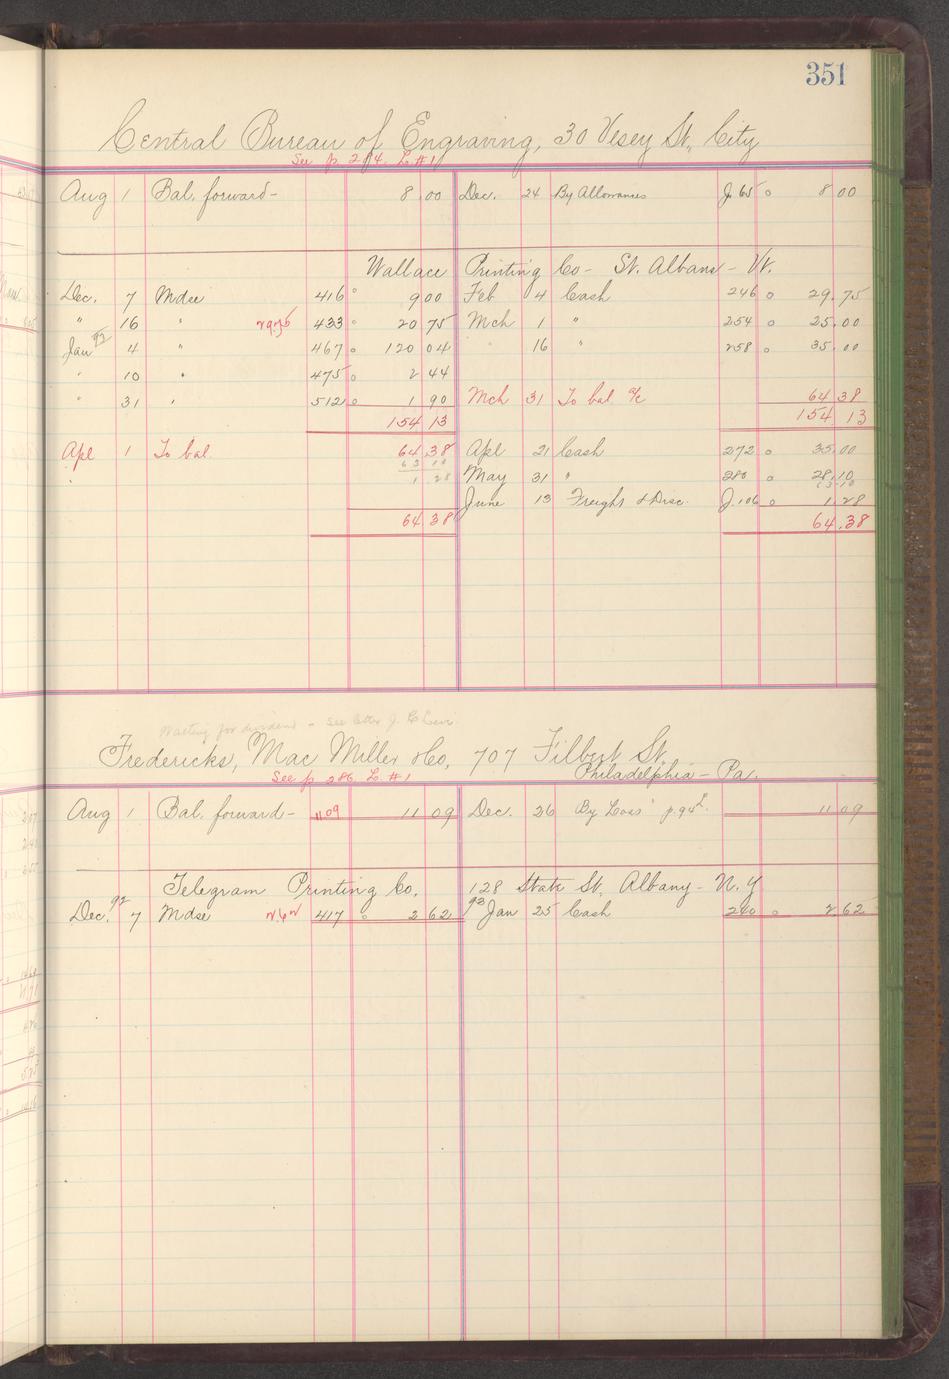 351
Central Bureau of Engraving, 30 Vesey St., City
See p. 284. L. #1
Aug 1 Bal. forward - 8 00 Dec. 24 By Allowances J. 65 o 8 00
Wallace Printing Co - St. Albans - Vt.
Dec. 7 Mdse 416 o 9 00 Feb 4 Cash 246 o 29.75
" 16 " 29.75 433 o 20 75 Mch 1 " 254 o 25.00
Jan 93 4 " 467 o 120 04 " 16 " 258 o 35.00
" 10 " 475 o 2 44
" 31 " 512 o 1 90 Mch 31 To bal a/c 64 38
154 13 154 13
Apl 1 To bal. 64 38 Apl 21 Cash 272 o 35.00
63 10
1 28 May 31 " 280 o 28.10
63.10
June 13 Freight & Disc. J. 106 o 1.28
64 38 64.38
Waiting for dividend - see letter J. C. Levi
Fredericks, Mac Miller & Co, 707 Filbert St.
Philadelphia - Pa.
See p 286. L. #1
Aug 1 Bal. forward - 11.09 11 09 Dec. 26 By Loss p. 94 L. 11 09
Telegram Printing Co. 128 State St. Albany - N.Y
Dec. 92 7 Mdse 2.62 417 o 2 62 93 Jan 25 Cash 240 o 2 62